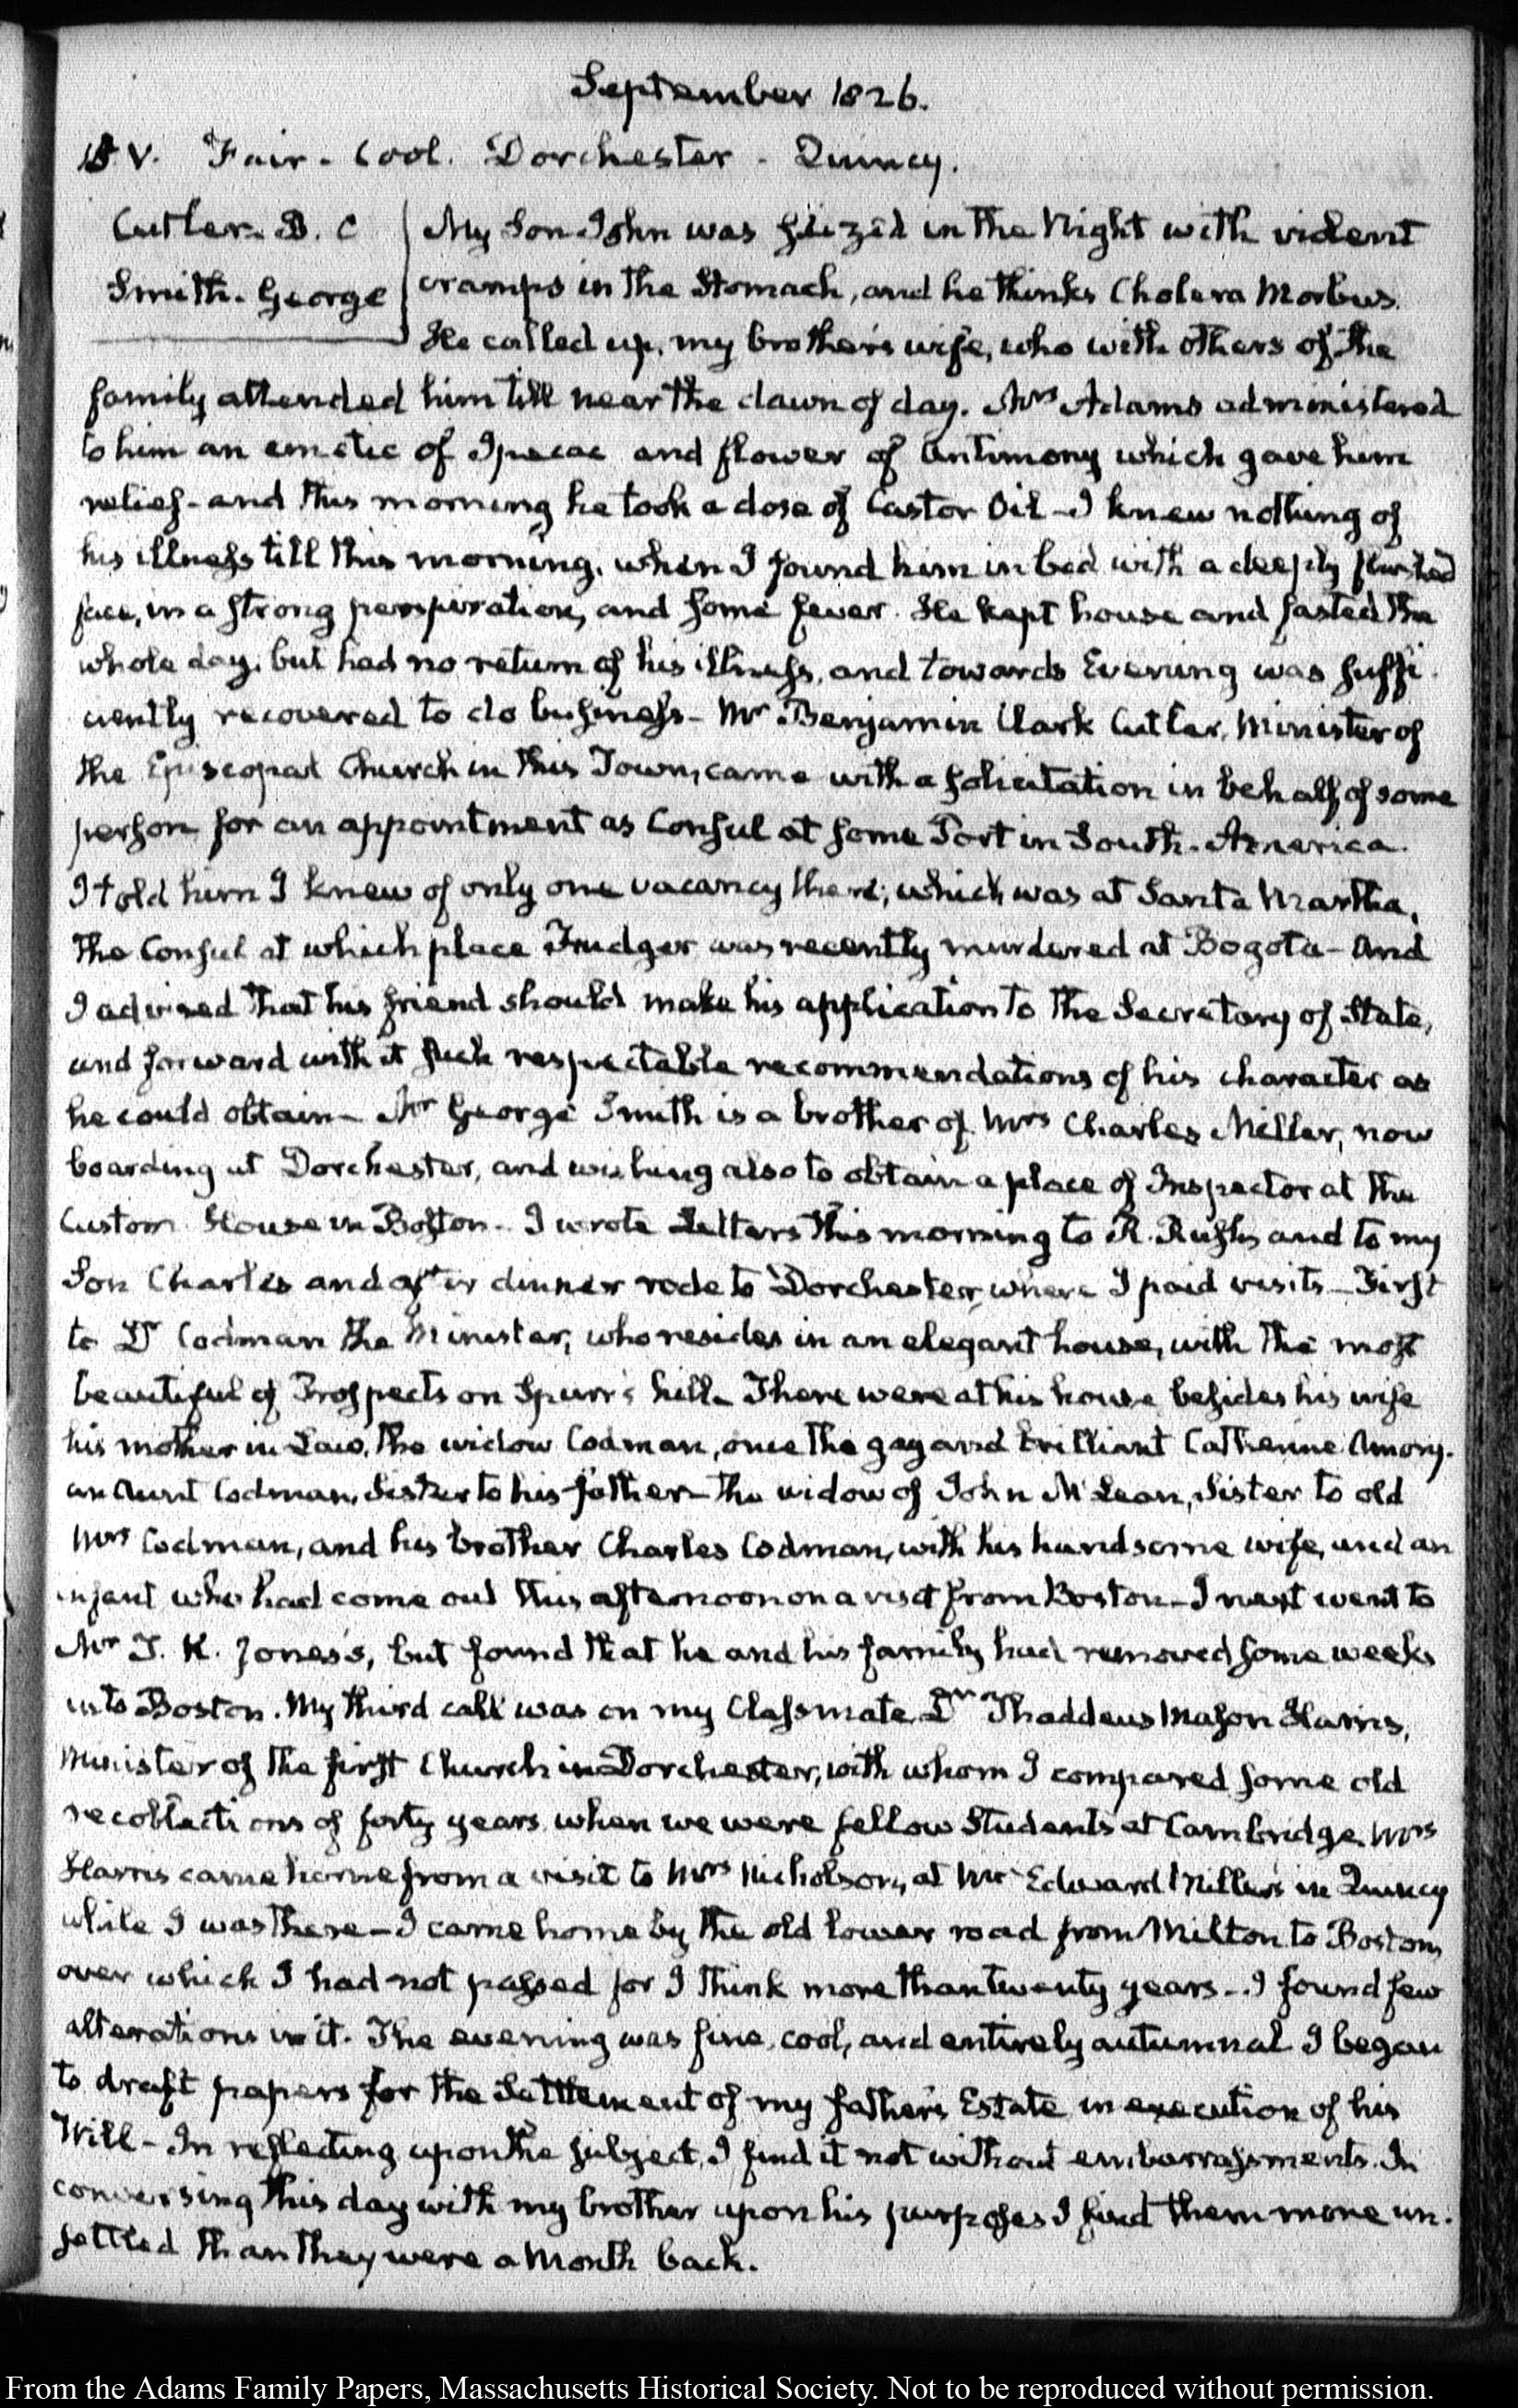 September 1826.
V. Fair - Cool. Dorchester - Quincy.
Cutler. B. C
Smith. George
My Son John was seized in the Night with violent
cramps in the Stomach, and he thinks Cholera Morbus.
He called up, my brother's wife, who with others of the
family attended him till near the dawn of day. Mrs Adams administered
to him an emetic of Ipecac and flower of Antimony which gave him
relief - and this morning he took a dose of Castor Oil - I knew nothing of
his illness till this morning, when I found him in bed with a deeply flushed
face, in a strong perspiration, and some fever. He kept house and fasted the
whole day, but had no return of his illness, and towards Evening was suffi
ciently recovered to do business - Mr Benjamin Clark Cutler, Minister of
the Episcopal Church in this Town, came with a solicitation in behalf of some
person for an appointment as Consul at some Port in South-America.
I told him I knew of only one vacancy there; which was at Santa Martha,
the Consul at which place Trudger was recently murdered at Bogota - And
I advised that his friend should make his application to the Secretary of State,
and forward with it such respectable recommendations of his character as
he could obtain - Mr George Smith is a brother of Mrs Charles Miller, now
boarding at Dorchester, and wishing also to obtain a place of Inspector at the
Custom House in Boston - I wrote Letters this morning to R. Rush, and to my
Son Charles and after dinner rode to Dorchester, where I paid visits - First
to Dr Codman the Minister, who resides in an elegant house, with the most
beautiful of Prospects on Spurr's hill - There were at his house besides his wife
his mother in Law, the widow Codman, once the gay and brilliant Catherine Amory.
an Aunt Codman, Sister to his father - the widow of John McLean, Sister to old
Mrs Codman, and his brother Charles Codman, with his handsome wife, and an
infant who had come out this afternoon on a visit from Boston - I next went to
Mr T. K. Jones's, but found that he and his family had removed some weeks
into Boston. My third call was on my Classmate Dr Thaddeus Mason Harris,
Minister of the first Church in Dorchester, with whom I compared some old
recollections of forty years when we were fellow Students at Cambridge. Mrs
Harris came home from a visit to Mrs Nicholson, at Mr Edward Miller's in Quincy
while I was there - I came home by the old lower road from Milton to Boston,
over which I had not passed for I think more than twenty years - I found few
alterations in it. The evening was fine, cool, and entirely autumnal. I began
to draft papers for the Settlement of my father's Estate in execution of his
Will - In reflecting upon the subject, I find it not without embarrassments. In
conversing this day with my brother upon his purposes I find them more un-
settled than they were a Month back.
From the Adams Family Papers, Massachusetts Historical Society. Not to be reproduced without permission.